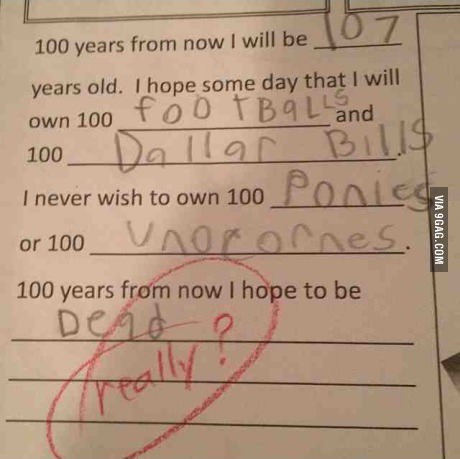 100 years from now I will be 107
years old. I hope some day that I will
own 100 footBalls and
100 Dallar Bills.
I never wish to own 100 Ponies
or 100 Unocornes.
100 years from now I hope to be
Dead
really?
VIA 9GAG.COM